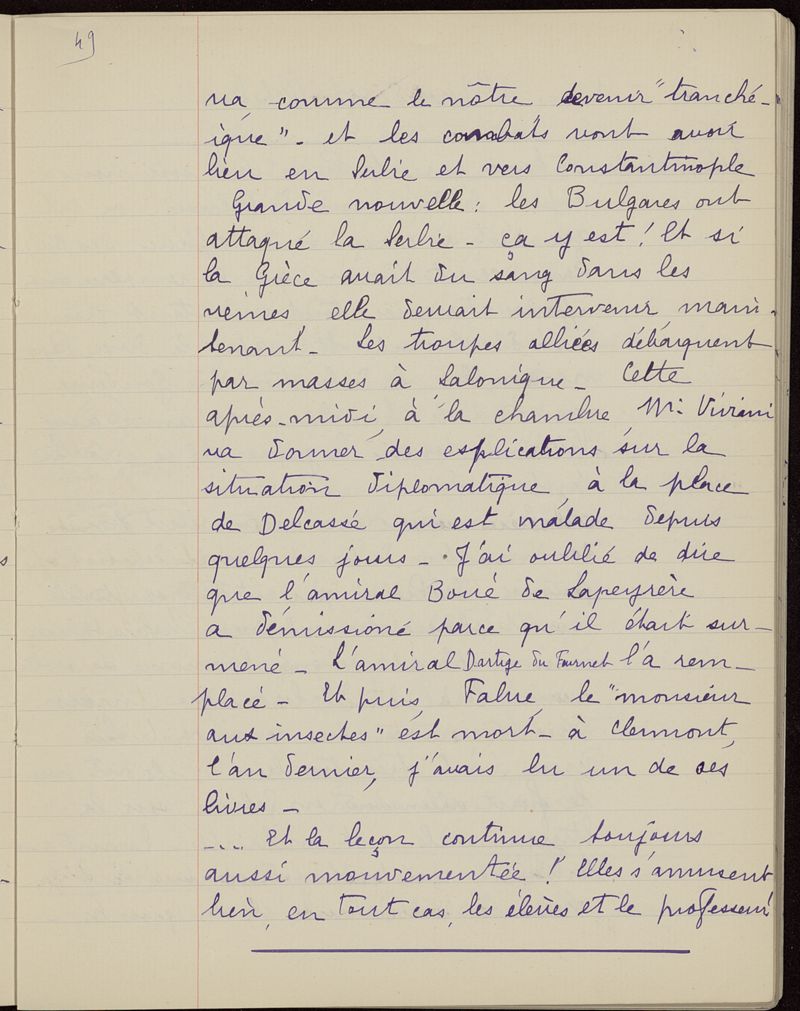 49
va comme le nôtre devenir "tranché-
ique" - et les combats vont avoir
lieu en Serbie et vers Constantinople
Grande nouvelle : les Bulgares ont
attaqué la Serbie - ça y est ! Et si
la Grèce avait du sang dans les
veines elle devrait intervenir main-
tenant - Les troupes alliées débarquent
par masses à Salonique - Cette
après-midi, à la chambre, Mr. Viviani
va donner des explications sur la
situation diplomatique, à la place
de Delcassé qui est malade depuis
quelques jours - J'ai oublié de dire
que l'amiral Boué de Lapeyrère
a démissioné parce qu'il était sur-
mené - L'amiral Dartige du Fournet l'a rem-
placé - Et puis, Fabre, le "monsieur
aux insectes" est mort - à Clermont,
l'an dernier, j'avais lu un de ses
livres -
-... Et la leçon continue toujours
aussi mouvementée ! Elles s'amusent
bien, en tout cas, les élèves et le professeur